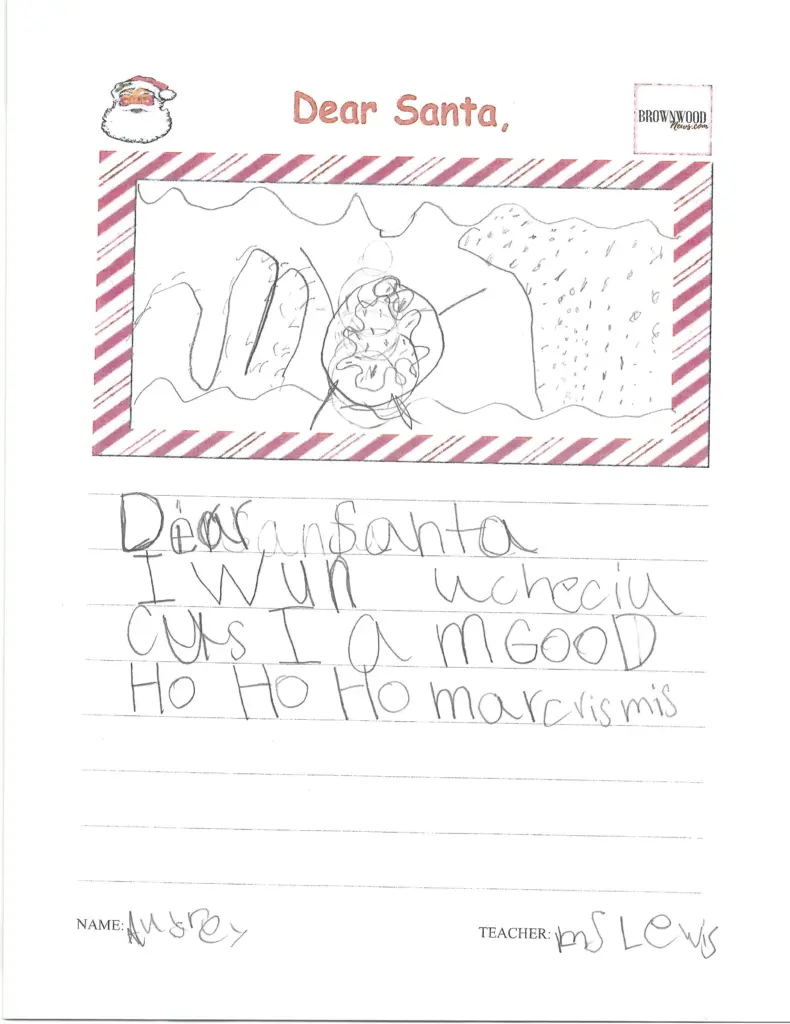 Dear Santa,
BROWNWOOD
News.com
Dear Santa
I Wun ucheciu
Cus I a m GOOD
Ho Ho Ho marcrismis
NAME: Aubrey
TEACHER: ms Lewis